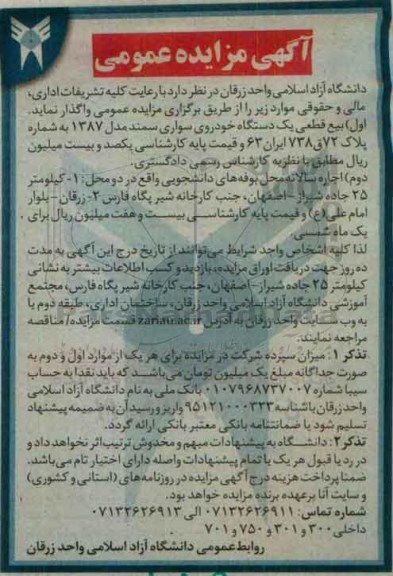 آگهی مزایده عمومی
دانشگاه آزاد اسلامی واحد زرقان در نظر دارد با رعایت کلیه تشریفات اداری،
مالی و حقوقی موارد زیر را از طریق برگزاری مزایده عمومی واگذار نماید.
اول) بیع قطعی یک دستگاه خودروی سواری سمند مدل ۱۳۸۷ به شماره
پلاک ۷۲ق۷۳۸ ایران ۶۳ و قیمت پایه کارشناسی یکصد و بیست میلیون
ریال مطابق با نظریه کارشناس رسمی دادگستری.
دوم) اجاره سالانه محل بوفه‌های دانشجویی واقع در دو محل: ۱- کیلومتر
۲۵ جاده شیراز - اصفهان، جنب کارخانه شیر پگاه فارس ۲- زرقان - بلوار
امام علی (ع) و قیمت پایه کارشناسی بیست و هفت میلیون ریال برای
یک ماه شمسی.
لذا کلیه اشخاص واجد شرایط می‌توانند از تاریخ درج این آگهی به مدت
ده روز جهت دریافت اوراق مزایده، بازدید و کسب اطلاعات بیشتر به نشانی
کیلومتر ۲۵ جاده شیراز - اصفهان، جنب کارخانه شیر پگاه فارس، مجتمع
آموزشی دانشگاه آزاد اسلامی واحد زرقان، ساختمان اداری، طبقه دوم یا
به وب سایت واحد زرقان به آدرس zariau.ac.ir قسمت مزایده/مناقصه
مراجعه نمایند.
تذکر ۱: میزان سپرده شرکت در مزایده برای هر یک از موارد اول و دوم به
صورت جداگانه مبلغ یک میلیون تومان می‌باشد که باید نقدا به حساب
سیبا شماره ۰۱۰۷۹۶۸۷۳۷۰۰۷ بانک ملی به نام دانشگاه آزاد اسلامی
واحد زرقان با شناسه ۹۵۱۲۱۰۰۰۳۲۳ واریز و رسید آن به ضمیمه پیشنهاد
تسلیم شود یا ضمانتنامه بانکی معتبر بانکی ارائه گردد.
تذکر ۲: دانشگاه به پیشنهادات مبهم و مخدوش ترتیب اثر نخواهد داد و
در رد یا قبول هر یک یا تمام پیشنهادات واصله دارای اختیار تام می‌باشد.
ضمنا پرداخت هزینه درج آگهی مزایده در روزنامه‌های (استانی و کشوری)
و سایت آنا بر عهده برنده مزایده خواهد بود.
شماره تماس: ۰۷۱۳۲۶۲۶۹۱۱ الی ۰۷۱۳۲۶۲۶۹۱۳
داخلی ۳۰۰ و ۳۰۱ و ۷۵۰ و ۷۰۱
روابط عمومی دانشگاه آزاد اسلامی واحد زرقان